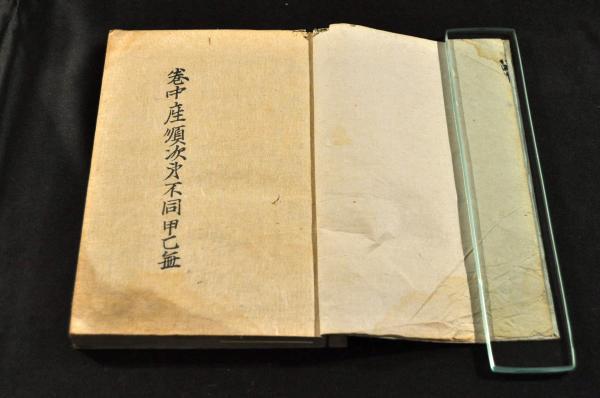 巻中座順次才不同甲乙無